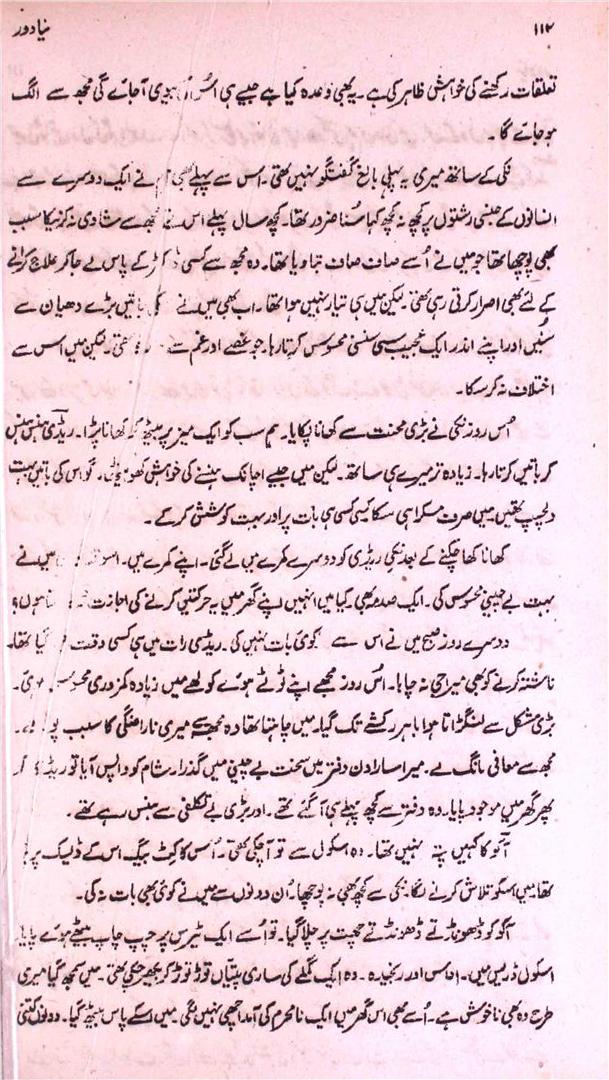 ۱۱۲
نیا دور
تعلقات رکھنے کی خواہش ظاہر کی ہے۔ یہ بھی وعدہ کیا ہے جیسے ہی اُس کی بیوی آ جائے گی مجھ سے الگ
ہو جائے گا۔
نکی کے ساتھ میری یہ پہلی بالغ گفتگو نہیں تھی۔ اس سے پہلے بھی ہم نے ایک دوسرے سے
انسانوں کے جنسی رشتوں پر کچھ نہ کچھ کہا سُنا ضرور تھا۔ کچھ سال پہلے اس نے مجھ سے شادی نہ کرنیکا سبب
بھی پوچھا تھا جو میں نے اُسے صاف صاف بتا دیا تھا۔ وہ مجھ سے کسی ڈاکٹر کے پاس لے جا کر علاج کرانے
کے لئے بھی اصرار کرتی رہی تھی۔ لیکن میں ہی تیار نہیں ہوا تھا۔ اب بھی میں نے کی باتیں بڑے دھیان سے
سُنیں اور اپنے اندر ایک عجیب سی سنسنی محسوس کرتا رہا۔ جو غصے اور غم سے تھی۔ لیکن میں اس سے
اختلاف نہ کر سکا۔
اُس روز نکی نے بڑی محنت سے کھانا پکایا۔ ہم سب کو ایک میز پر بیٹھ کر کھانا پڑا۔ ریڈی ہنس ہنس
کر باتیں کرتا رہا۔ زیادہ تر میرے ہی ساتھ۔ لیکن میں جیسے اچانک ہنسنے کی خواہش کھو بیٹھا۔ گو اس کی باتیں بہت
دلچسپ تھیں میں صرف مسکرا ہی سکا کسی کسی ہی بات پر اور بہت کوشش کر کے۔
کھانا کھا چکنے کے بعد نکی ریڈی کو دوسرے کمرے میں لے گئی۔ اپنے کمرے میں۔ اسوقت میں نے
بہت بے چینی محسوس کی۔ ایک صدمہ بھی۔ کیا میں انہیں اپنے گھر میں یہ حرکتیں کرنے کی اجازت ہوں؟
دوسرے روز صبح میں نے اس سے کوئی بات نہیں کی۔ ریڈی رات میں ہی کسی وقت گیا تھا۔
ناشتہ کرنے کو بھی میرا جی نہ چاہا۔ اُس روز مجھے اپنے ٹوٹے ہوئے کولھے میں زیادہ کمزوری محسوس ہوئی۔
بڑی مشکل سے لنگڑاتا ہوا باہر رکشے تک گیا۔ میں چاہتا تھا وہ مجھ سے میری ناراضگی کا سبب پوچھے۔
مجھ سے معافی مانگ لے۔ میرا سارا دن دفتر میں سخت بے چینی میں گذرا۔ شام کو واپس آیا تو ریڈی کو
پھر گھر میں موجود پایا۔ وہ دفتر سے کچھ پہلے ہی آ گئے تھے۔ اور بڑی بے تکلفی سے ہنس رہے تھے۔
آگو کا کہیں پتہ نہیں تھا۔ وہ اسکول سے تو آ چکی تھی۔ اُس کا کٹ بیگ اس کے ڈیسک پر پڑا
تھا میں اسکو تلاش کرنے لگا۔ نکی سے کچھ بھی نہ پوچھا۔ اُن دونوں سے میں نے کوئی بھی بات نہ کی۔
آگو کو ڈھونڈتے ڈھونڈتے چھت پر چلا گیا۔ تو اُسے ایک ٹیرس پر چپ چاپ بیٹھے ہوئے پایا۔
اسکول ڈریس میں۔ اداس اور رنجیدہ۔ وہ ایک گملے کی ساری پتیاں توڑ توڑ کر بکھیر چکی تھی۔ میں سمجھ گیا میری
طرح وہ بھی ناخوش ہی ہے۔ اُسے بھی اس گھر میں ایک نامحرم کی آمد اچھی نہیں لگی۔ میں اسکے پاس بیٹھ گیا۔ وہ بولی کتنی